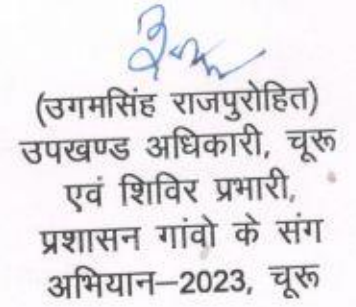 (उगमसिंह राजपुरोहित)
उपखण्ड अधिकारी, चूरू
एवं शिविर प्रभारी,
प्रशासन गांवो के संग
अभियान–2023, चूरू